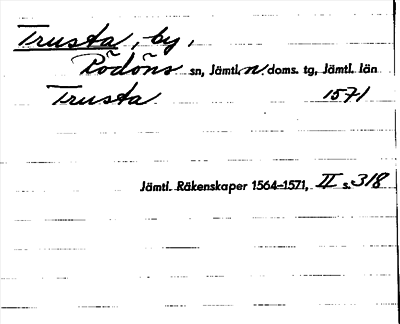 Trusta, by,
Rödöns sn, Jämtl. n. doms. tg, Jämtl. län
Trusta 1571
Jämtl. Räkenskaper 1564–1571, II s. 318